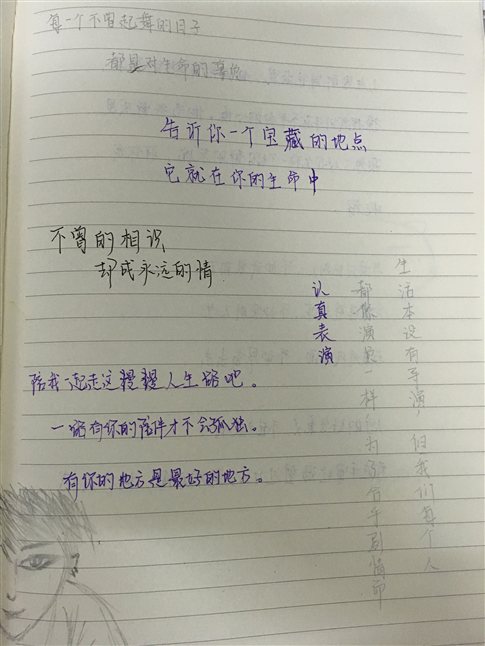 每一个不曾起舞的日子
都是对生命的辜负
告诉你一个宝藏的地点
它就在你的生命中
不曾的相识
却成永远的情
生活本没有导演 但我们每个人
都像演员一样 为了合乎剧情而
认真表演
陪我一起走这漫漫人生路吧。
一路有你的陪伴才不会孤独。
有你的地方是最好的地方。